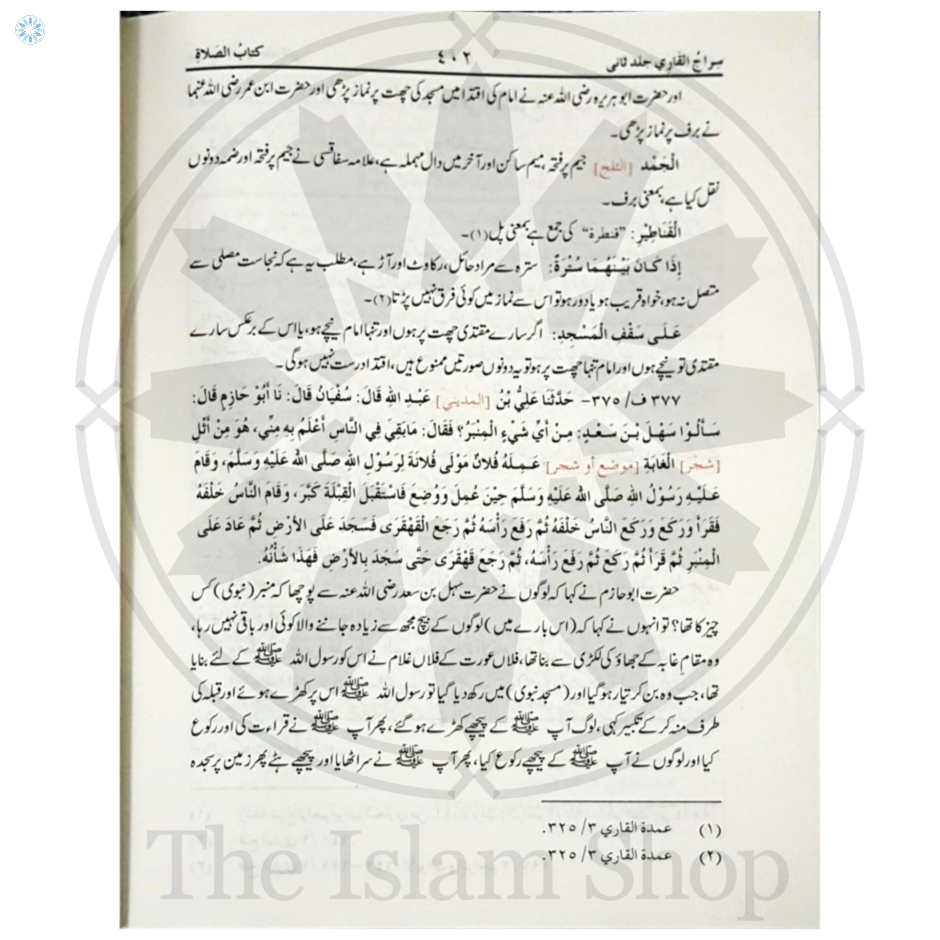 سِراجُ القَارِي جلد ثانی ٤٠٢ کتابُ الصَلاةِ
اور حضرت ابو ہریرہ رضی اللہ عنہ نے امام کی اقتدا میں مسجد کی چھت پر نماز پڑھی اور حضرت ابن عمر رضی اللہ عنہما
نے برف پر نماز پڑھی۔
الْجَمْد [الثلج] جیم پر فتحہ میم ساکن اور آخر میں دال مہملہ ہے، علامہ سفاقسی نے جیم پر فتحہ اور ضمہ دونوں
نقل کیا ہے، بمعنی برف۔
الْقَنَاطِيْرِ: ”قنطرة“ کی جمع ہے بمعنی پل (۱)۔
إِذَا كَانَ بَيْنَهُمَا سُتْرَةٌ: سترہ سے مراد حائل، رکاوٹ اور آڑ ہے، مطلب یہ ہے کہ نجاست مصلی سے
متصل نہ ہو، خواہ قریب ہو یا دور ہو تو اس سے نماز میں کوئی فرق نہیں پڑتا (۲)۔
عَلَى سَقْفِ الْمَسْجِدِ: اگر سارے مقتدی چھت پر ہوں اور تنہا امام نیچے ہو، یا اس کے برعکس سارے
مقتدی تو نیچے ہوں اور امام تنہا چھت پر ہو تو یہ دونوں صورتیں ممنوع ہیں، اقتدا درست نہیں ہوگی۔
٣٧٧ ف/ ٣٧٥- حَدَّثَنَا عَلِيُّ بْنُ [المديني] عَبْدِ اللهِ قَالَ: سُفْيَانُ قَالَ: نَا أَبُوْ حَازِمٍ قَالَ:
سَأَلُوْا سَهْلَ بْنَ سَعْدٍ: مِنْ أَيِّ شَيْءٍ الْمِنْبَرُ؟ فَقَالَ: مَابَقِيَ فِي النَّاسِ أَعْلَمُ بِهِ مِنِّي، هُوَ مِنْ أَثْلِ
[شجر] الْغَابَةِ [موضع أو شجر] عَمِلَهُ فُلَانٌ مَوْلَى فُلَانَةَ لِرَسُوْلِ اللهِ صَلَّى اللهُ عَلَيْهِ وَسَلَّمَ، وَقَامَ
عَلَيْهِ رَسُوْلُ اللهِ صَلَّى اللهُ عَلَيْهِ وَسَلَّمَ حِيْنَ عُمِلَ وَوُضِعَ فَاسْتَقْبَلَ الْقِبْلَةَ كَبَّرَ، وَقَامَ النَّاسُ خَلْفَهُ
فَقَرَأَ وَرَكَعَ وَرَكَعَ النَّاسُ خَلْفَهُ ثُمَّ رَفَعَ رَأْسَهُ ثُمَّ رَجَعَ الْقَهْقَرَى فَسَجَدَ عَلَى الْأَرْضِ ثُمَّ عَادَ عَلَى
الْمِنْبَرِ ثُمَّ قَرَأَ ثُمَّ رَكَعَ ثُمَّ رَفَعَ رَأْسَهُ، ثُمَّ رَجَعَ قَهْقَرَى حَتَّى سَجَدَ بِالْأَرْضِ فَهَذَا شَأْنُهُ.
حضرت ابو حازم نے کہا کہ لوگوں نے حضرت سہل بن سعد رضی اللہ عنہ سے پوچھا کہ منبر (نبوی) کس
چیز کا تھا؟ تو انہوں نے کہا کہ (اس بارے میں) لوگوں کے بیچ مجھ سے زیادہ جاننے والا کوئی اور باقی نہیں رہا،
وہ مقام غابہ کے جھاؤ کی لکڑی سے بنا تھا، فلاں عورت کے فلاں غلام نے اس کو رسول اللہ ﷺ کے لئے بنایا
تھا، جب وہ بن کر تیار ہو گیا اور (مسجد نبوی) میں رکھ دیا گیا تو رسول اللہ ﷺ اس پر کھڑے ہوئے اور قبلہ کی
طرف منہ کر کے تکبیر کہی، لوگ آپ ﷺ کے پیچھے کھڑے ہو گئے، پھر آپ ﷺ نے قراءت کی اور رکوع
کیا اور لوگوں نے آپ ﷺ کے پیچھے رکوع کیا، پھر آپ ﷺ نے سر اٹھایا اور پیچھے ہٹے پھر زمین پر سجدہ
(۱) عمدة القاري ۳/ ۳۲۵.
(۲) عمدة القاري ۳/ ۳۲۵.
The Islam Shop